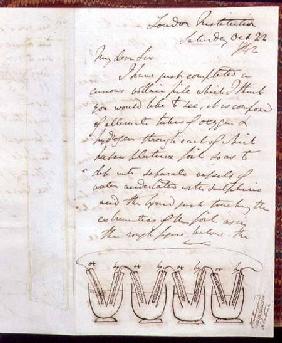 London Institution
Saturday Oct 22
1842
My Dear Sir
I have just completed a
curious voltaic pile which I think
you would like to see, it is composed
of alternate tubes of oxygen &
hydrogen through each of which
passes platina foil so as to
dip into separate vessels of
water acidulated with sulphuric
acid the liquid just touching the
extremities of the foil as in
the rough figure below the